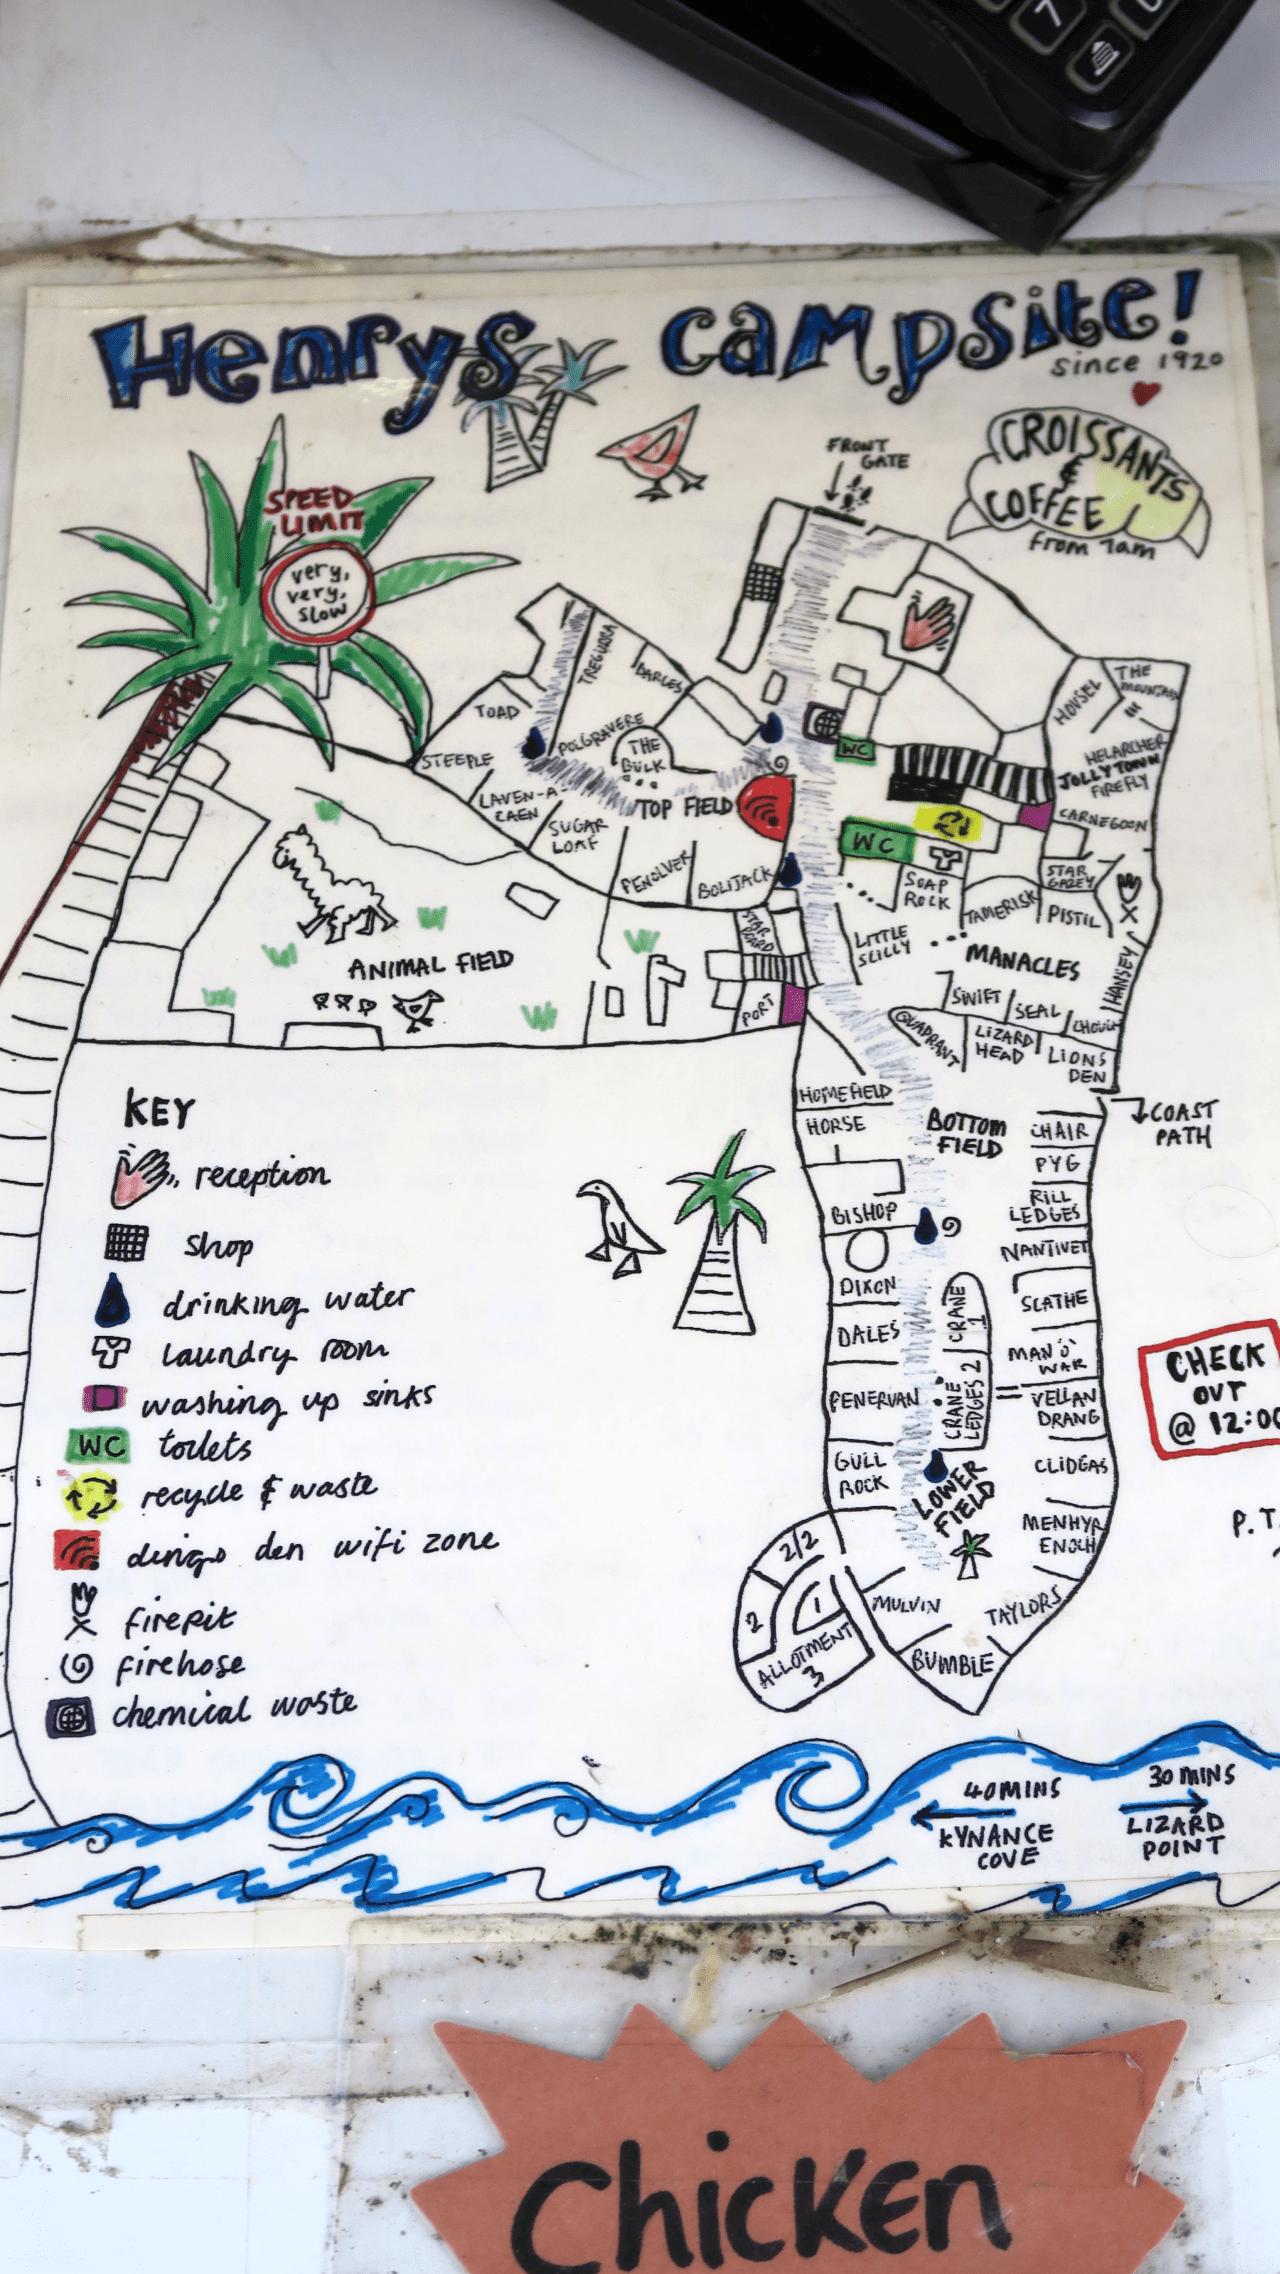 7
Henrys campsite!
since 1920
CROISSANTS
&
COFFEE
from 7am
FRONT
GATE
SPEED
LIMIT
very,
very,
slow
TREGURRA
DARLES
TOAD
POLGRAVERE
STEEPLE
THE
BULK
LAVEN-A-
CAEN
TOP FIELD
SUGAR
LOAF
PENOLVER
BOLIJACK
HOUSEL
THE
MOUNTAIN
WC
HELARCHER
JOLLY TOWN
FIREFLY
CARNEGOON
WC
SOAP
ROCK
STAR
GAZEY
TAMERISK
PISTIL
LITTLE
SCILLY
MANACLES
HANSEY
STAR
BOARD
PORT
ANIMAL FIELD
SWIFT
SEAL
CHOUGH
QUADRANT
LIZARD
HEAD
LIONS
DEN
HOMEFIELD
HORSE
BOTTOM
FIELD
CHAIR
COAST
PATH
PYG
RILL
LEDGES
BISHOP
NANTIVET
DIXON
CRANE
1
SCATHE
DALES
MAN 'O'
WAR
PENERVAN
CRANE
LEDGES 2
VELLAN
DRANG
GULL
ROCK
CLIDGAS
LOWER
FIELD
MENHYR
ENOCH
2/2
2
1
ALLOTMENT
3
MULVIN
TAYLORS
BUMBLE
KEY
reception
shop
drinking water
laundry room
washing up sinks
WC toilets
recycle & waste
dingo den wifi zone
firepit
firehose
chemical waste
CHECK
OUT
@ 12:00
P.T.
40MINS
KYNANCE
COVE
30 MINS
LIZARD
POINT
Chicken